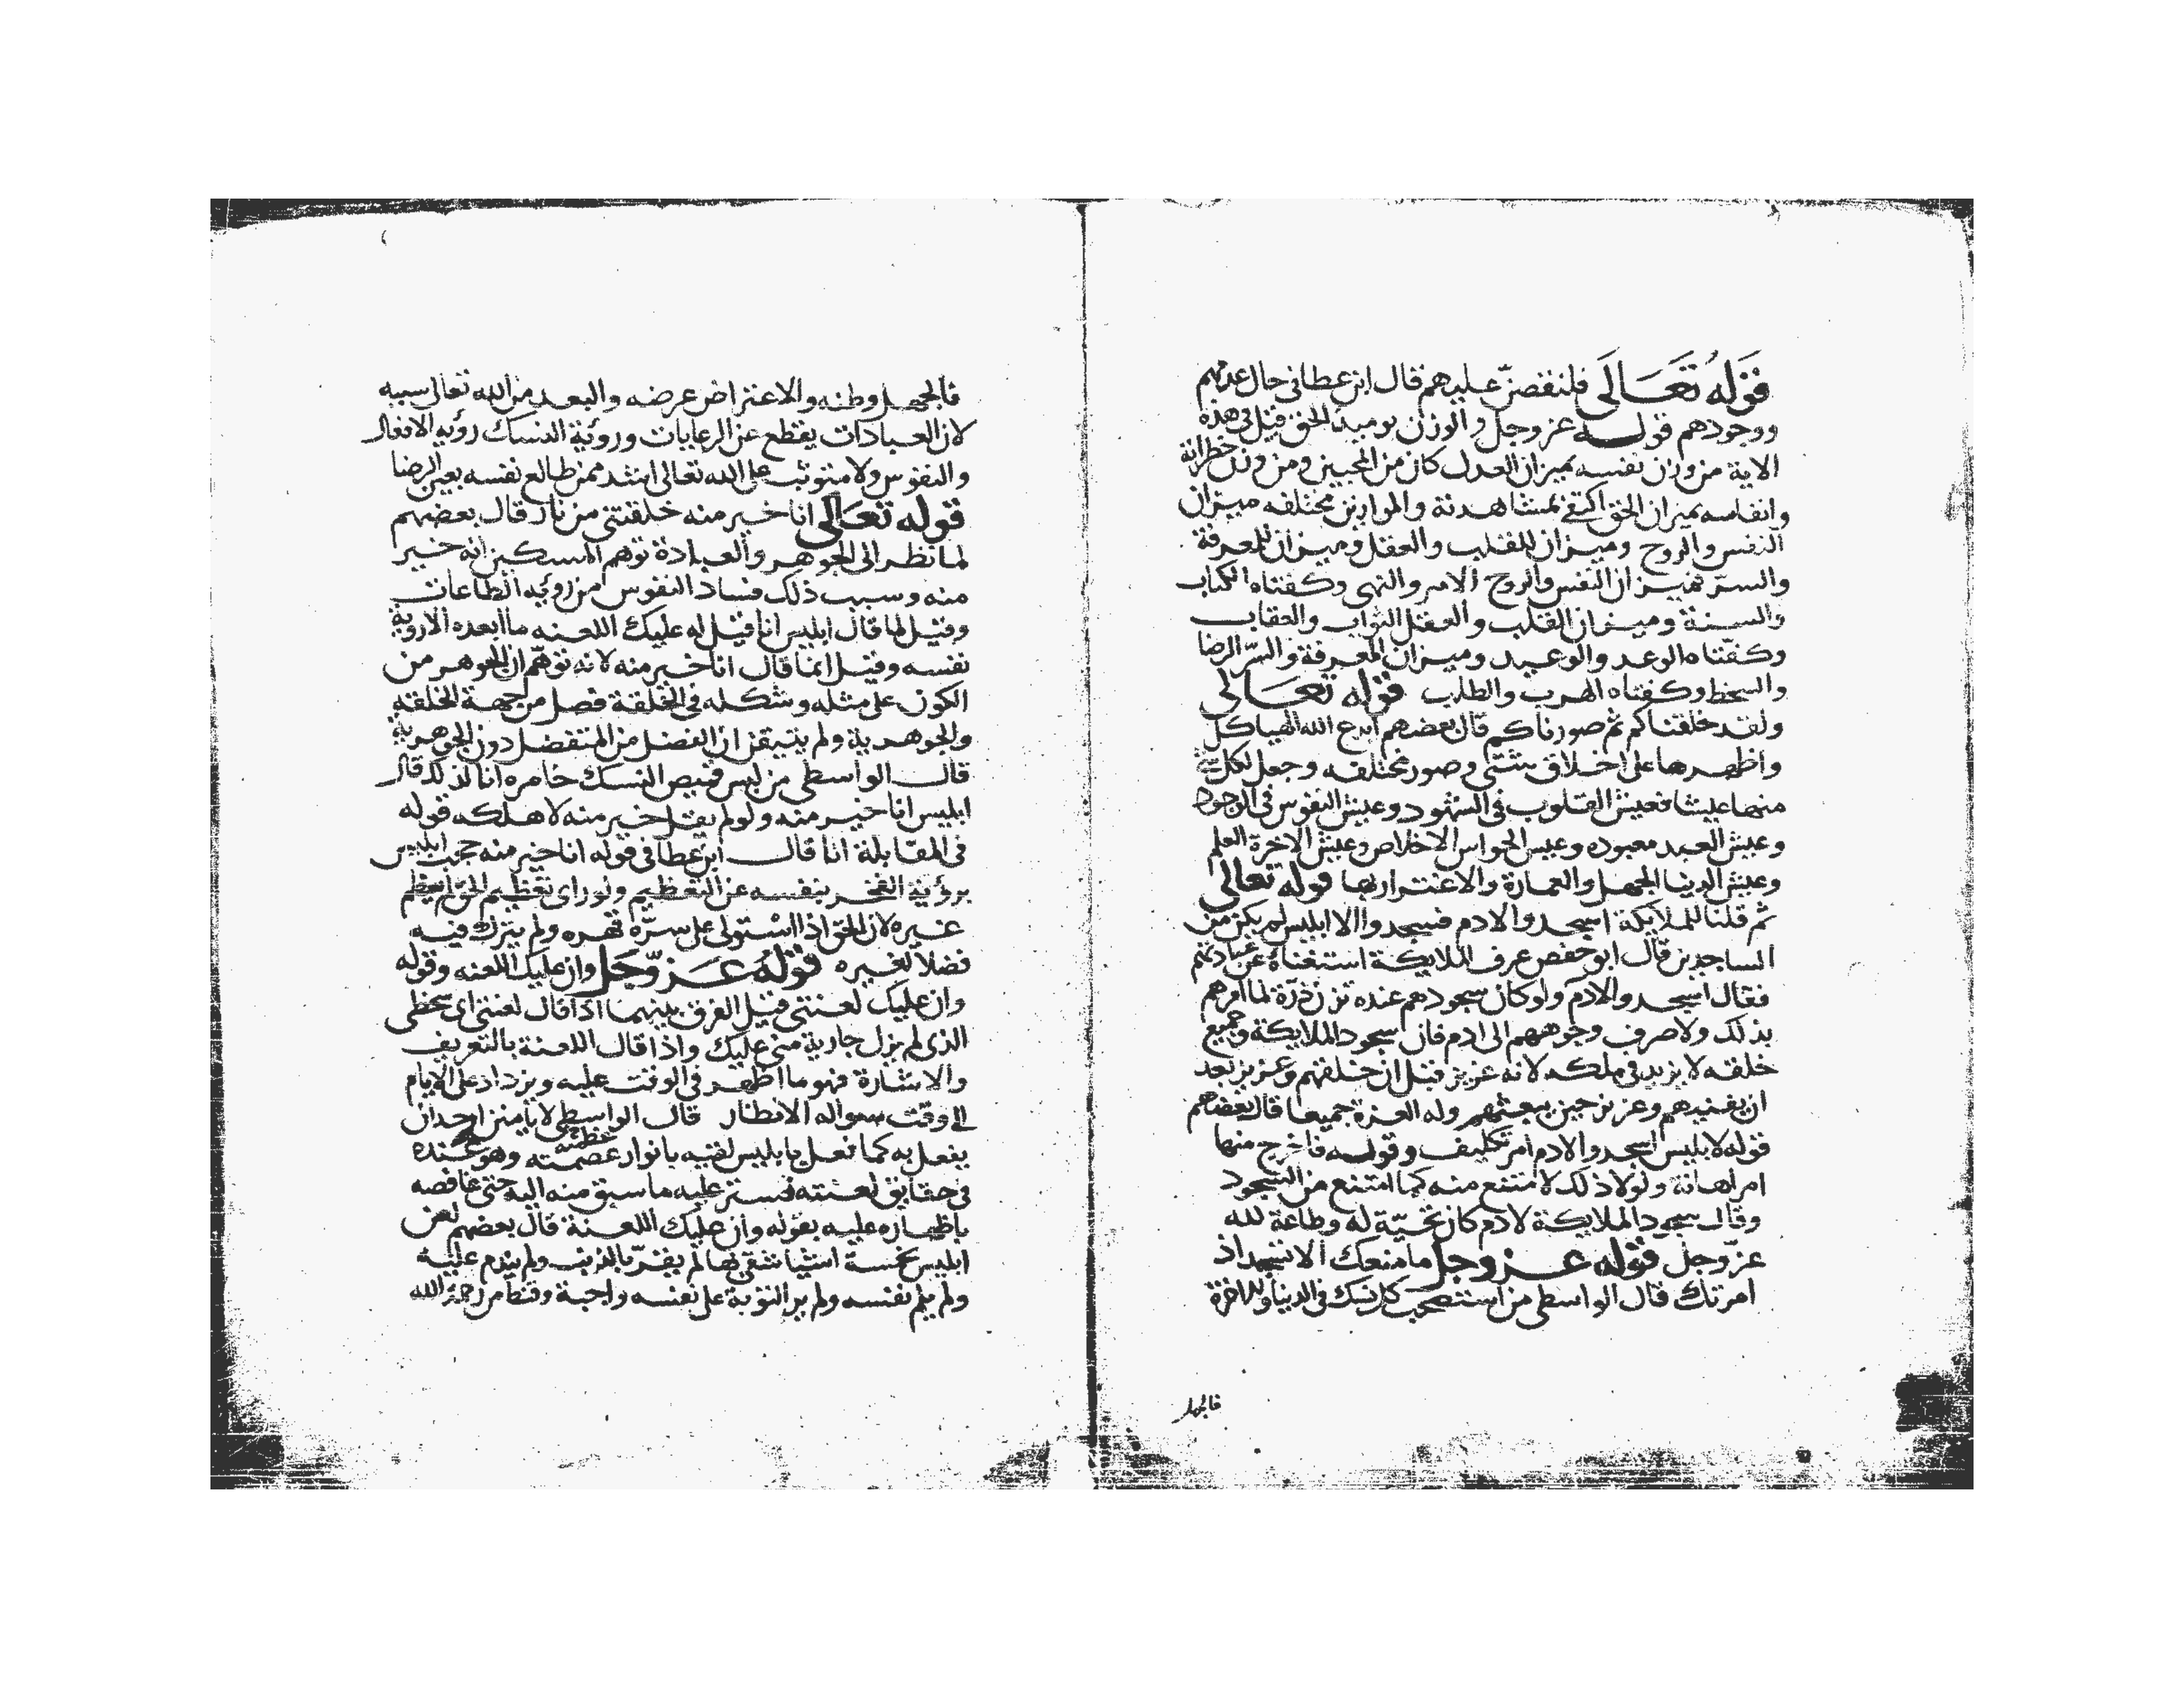 قوله تعالى فلنقصن عليهم قال ابن عطا في حال عدمهم
ووجودهم قوله عز وجل والوزن يوميذ الحق قيل في هذه
الاية من وزن نفسه بميزان العدل كان من المخبتين ومن وزن خطراته
وانفاسه بميزان الحق اكتفى بمشاهدته والموازين مختلفه ميزان
النفس والروح وميزان للقلب والعقل وميزان للمعرفة
والسر فميزان النفس والروح الامر والنهى وكفتاه الكتاب
والسنة وميزان القلب والعقل الثواب والعقاب
وكفتاه الوعد والوعيد وميزان المعرفة والسر الرضا
والسخط وكفتاه الهرب والطلب قوله تعالى
ولقد خلقناكم ثم صورناكم قال بعضهم ابدع الله الهياكل
واظهرها على اخلاق شتى وصور مختلفه وجعل لكل شئ
منها عيشا فعيش القلوب في الشهود وعيش النفوس في الوجود
وعيش العبد معبوده وعيش الحواس الاخلاص وعيش الاخرة العلم
وعيش الدنيا الجهل والعمارة والاغترار بها قوله تعالى
ثم قلنا للملايكة اسجدوا لادم فسجدوا الا ابليس لم يكن من
الساجدين قال ابو حفص عرف الملايكة استغناه عن عبادتهم
فقال اسجدوا لادم ولو كان سجودهم عنده تزن ذرة لما امرهم
بذلك ولا صرف وجوههم الى ادم فان سجود الملايكة وجميع
خلقه لا يزيد في ملكه لانه عزيز قبل ان خلقهم وعزيز بعد
ان يفنيهم وعزيز حين يبعثهم وله العزة جميعا قال بعضهم
قوله لابليس اسجدوا لادم امر تكليف وقوله فاخرج منها
امر اهانة ولولا ذلك لامتنع منه كما امتنع من السجود
وقال سجود الملايكة لادم كان تحية له وطاعة لله
عز وجل قوله عز وجل ما منعك الا تسجد اذ
امرتك قال الواسطي من استصحب كل نسك في الدنيا والاخرة
فالجهل
فالجهل وطنه والاعتراض عرضه والبعد من الله تعالى سببه
لان العبادات يقطع عن الرعايات وروية النسك رؤيه الافعال
والنفوس ولا متوثب على الله تعالى اشد ممن طالع نفسه بعين الرضا
قوله تعالى انا خير منه خلقتنى من نار قال بعضهم
لما نظر الى الجوهر والعبادة توهم المسكين انه خير
منه وسبب ذلك فساد النفوس من رؤيه الطاعات
وقيل لما قال ابليس انا قيل له عليك اللعنه ما ابعده الا روية
نفسه وقيل انما قال انا خير منه لانه توهم ان الجوهر من
الكون على مثله وشكله في الخلقة فضل من جهة الخلقه
والجوهرية ولم يتيقن ان الفضل من المتفضل دون الجوهرية
قال الواسطي من لبس قميص النسك خامره انا لذلك قال
ابليس انا خير منه ولو لم يقل خير منه لاهلكه قوله
في المقابلة انا قال ابن عطا في قوله انا خير منه حجب ابليس
برؤية الفخر بنفسه عن التعظيم ولو راى تعظيم الحق لم يعظم
غيره لان الحق اذا استولى على سره قهره ولم يترك فيه
فضلا لغيره قوله عز وجل وان عليك اللعنه وقوله
وان عليك لعنتي قيل الفرق بينهما اذا قال لعنتي اى سخطى
الذى لم يزل جارية منى عليك واذا قال اللعنة بالتعريف
والاشارة فهو ما اظهر في الوقت عليه ويزداد على الايام
الى وقت سواله الانظار قال الواسطي لا يامنن احد ان
يفعل به كما فعل بابليس لقيه بانوار عصمته عظمته وهو عنده
في حقايق لعنته فستر عليه ما سبق منه اليه حتى غافصه
باظهاره عليه بقوله وان عليك اللعنة قال بعضهم لعن
ابليس بخمسة اشيا شقى بها لم يقر بالذنب ولم يندم عليه
ولم يلم نفسه ولم ير التوبة على نفسه واجبة وقنط من رحمة الله